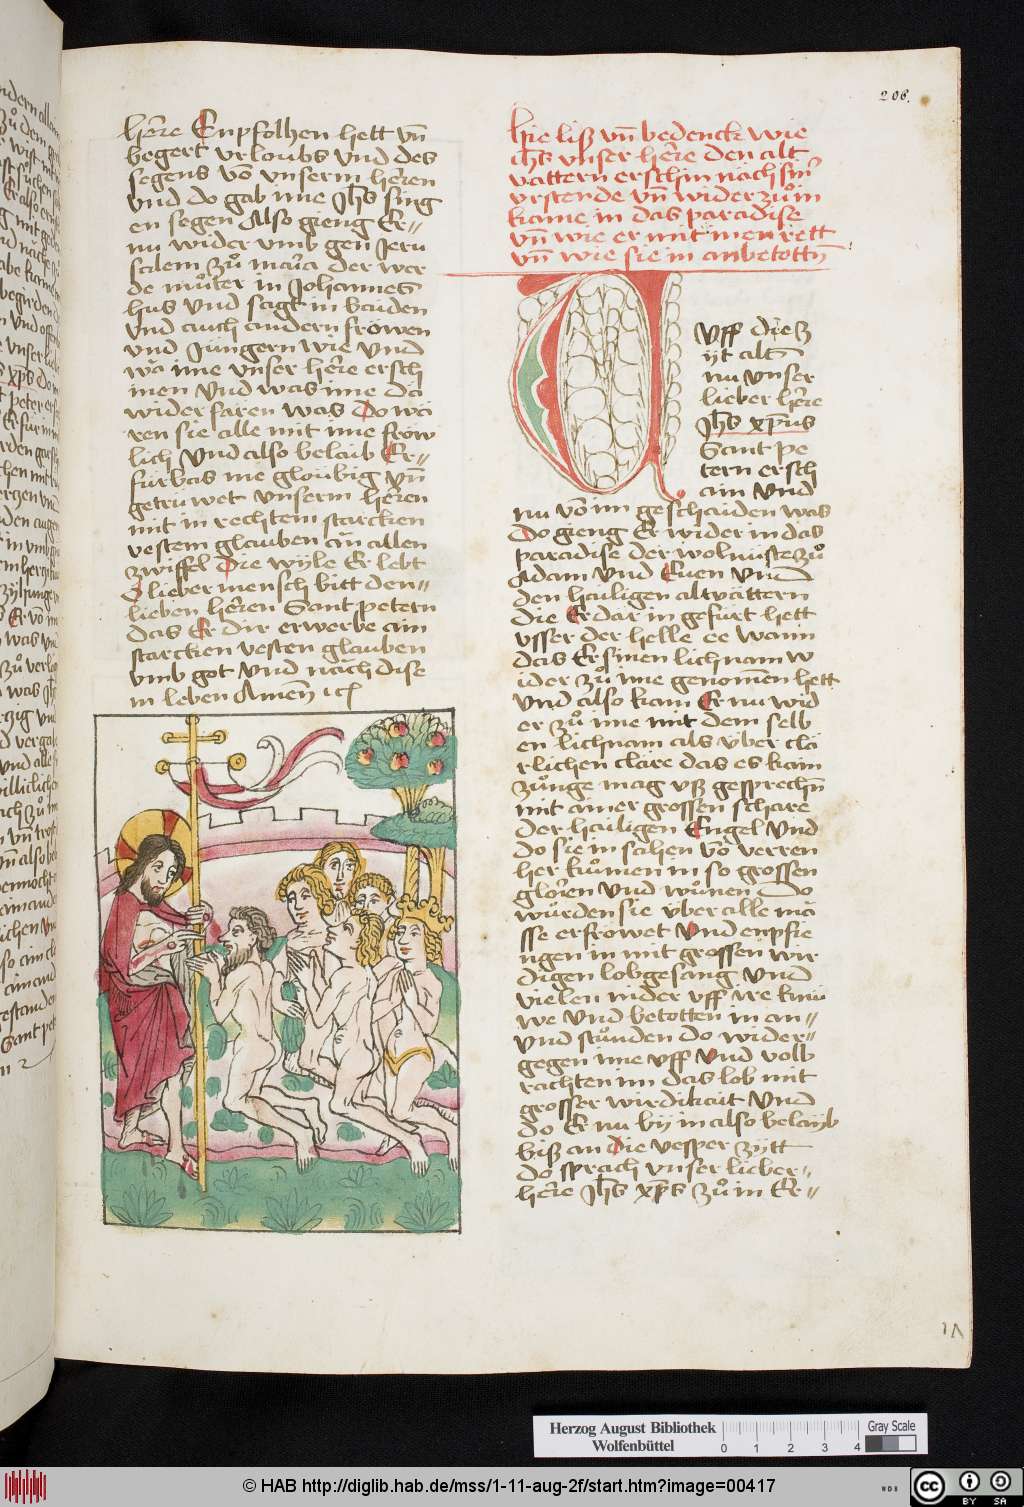 206.
here Enpfolhen hett vn̄
begert vrloubs Vnd des
segens vō vnserm herren
vnd do gab ime Jh̄s sing
en segen Also gieng Er=
nu wider vmb gen Jeru
salem zů maria der wer
de můter in Johannes
hus Vnd sagt in baiden
vnd auch andern frowen
vnd Jungern wie Vnd
wa ime vnser here ersch
inen Vnd was ime da
widerfaren was do wa
ren sie alle mit ime frow
lich Vnd also belaib Er=
fürbas me gloubig vn̄
getrüwet vnserm herren
mit in rechtem starcken
vestem glauben an allen
zwiffel die wyle Er lebt
O lieber mensch bitt den=
lieben herren Sant petern
das Er dir erwerbe ain
starcken vesten glauben
vmb got Vnd nach dise
m leben Amen
Hie lisz vn̄ bedenck wie
Jh̄s vnser here den alt
vattern erschin nach sinr
vrstende vn̄ wider zů in
kame in das paradise
vn̄ wie er mit inen rett
vn̄ wie sie in anbetottn̄
Vff dise z
ijt als
nu vnser
lieber here
Jh̄s xp̄us
Sant pe
tern ersch
ain Vnd
nu vō im geschaiden was
do gieng Er wider in das
paradise der wolnuste zů
Adam Vnd Euen Vnd
den hailigen altvättern
die Er dar in gefürt hett
vsser der helle ee wann
das Er sinen lichnam w
ider zů ime genomen hett
Vnd also kam Er nu wid
er zů ime mit dem selb
en lichnam als über cla
rlichen clare das es kain
zunge mag vsz gesprechn̄
mit ainer grossen schare
der hailigen Engel Vnd
do sie in sahen vō verren
her kumen in so grossen
gloren Vnd wunen Do
würden sie über alle ma
sse erfröwet Vnd enpfie
ngen in mit grossen wir
digen lobgesang Vnd
vielen nider vff ire knü
we Vnd betotten in an=
Vnd stůnden do wider=
gegen ime vff Vnd volb
rachten im das lob mit
grosser wirdikait Vnd
do Er nu by in also belaib
bisz an die vesper zytt
do sprach vnser lieber=
here Jh̄s xp̄s zů in Er=
Herzog August Bibliothek
Wolfenbüttel
0 1 2 3 4
Gray Scale
© HAB http://diglib.hab.de/mss/1-11-aug-2f/start.htm?image=00417
WDB
cc BY SA